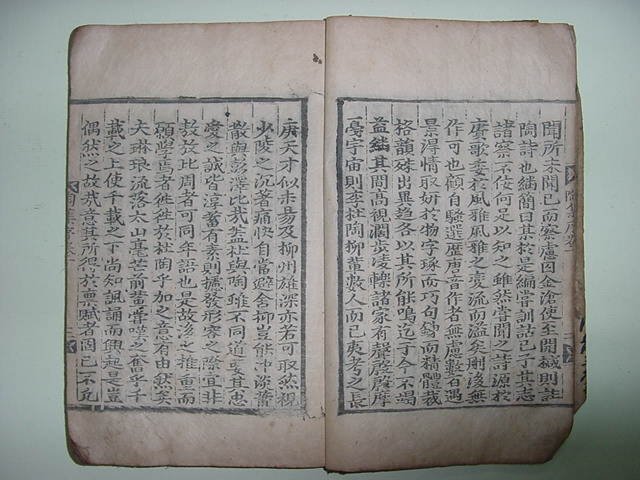 聞所未聞已而察慮因金滄使至開極則註
陶詩也緬簡曰某於是編嘗訓詁已子其志
諸察不佞何足以知之雖然嘗聞之詩源於
賡歌委於風雅風雅之變流而溢矣刪後無
作可也顧自騷選歷唐音作者無慮數百遇
景得情取姸於物字琢而巧句鍊而精體裁
格韻殊出異趋各以其所能鳴迄于今不竭
益繡其間高視濶步凌轢諸家有聲殷殷摩
宇宙則李杜陶柳輩數人而已夷考之長
庚天才似未易及柳州雄深亦若可取然視
少陵之沉著痛快自當避舍抑豈能冲淡蕭
散與彭澤比哉盖杜與陶雖不同道受其忠
愛之誠皆淳蓄有素則攄發形容之際宜非
敖敖比周者可同年語也是故後之推重而
願學焉者徃徃於杜陶乎加之意有由然矣
夫琳琅流落太山毫芒前輩嘗嘆之奮乎千
載之上使千載之下尚知諷誦而興起是豈
偶然之故哉意其所得於稟賦者固已不凡